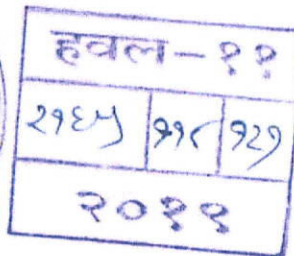 हवल-११
२१६५ ११८ १२१
२०१९